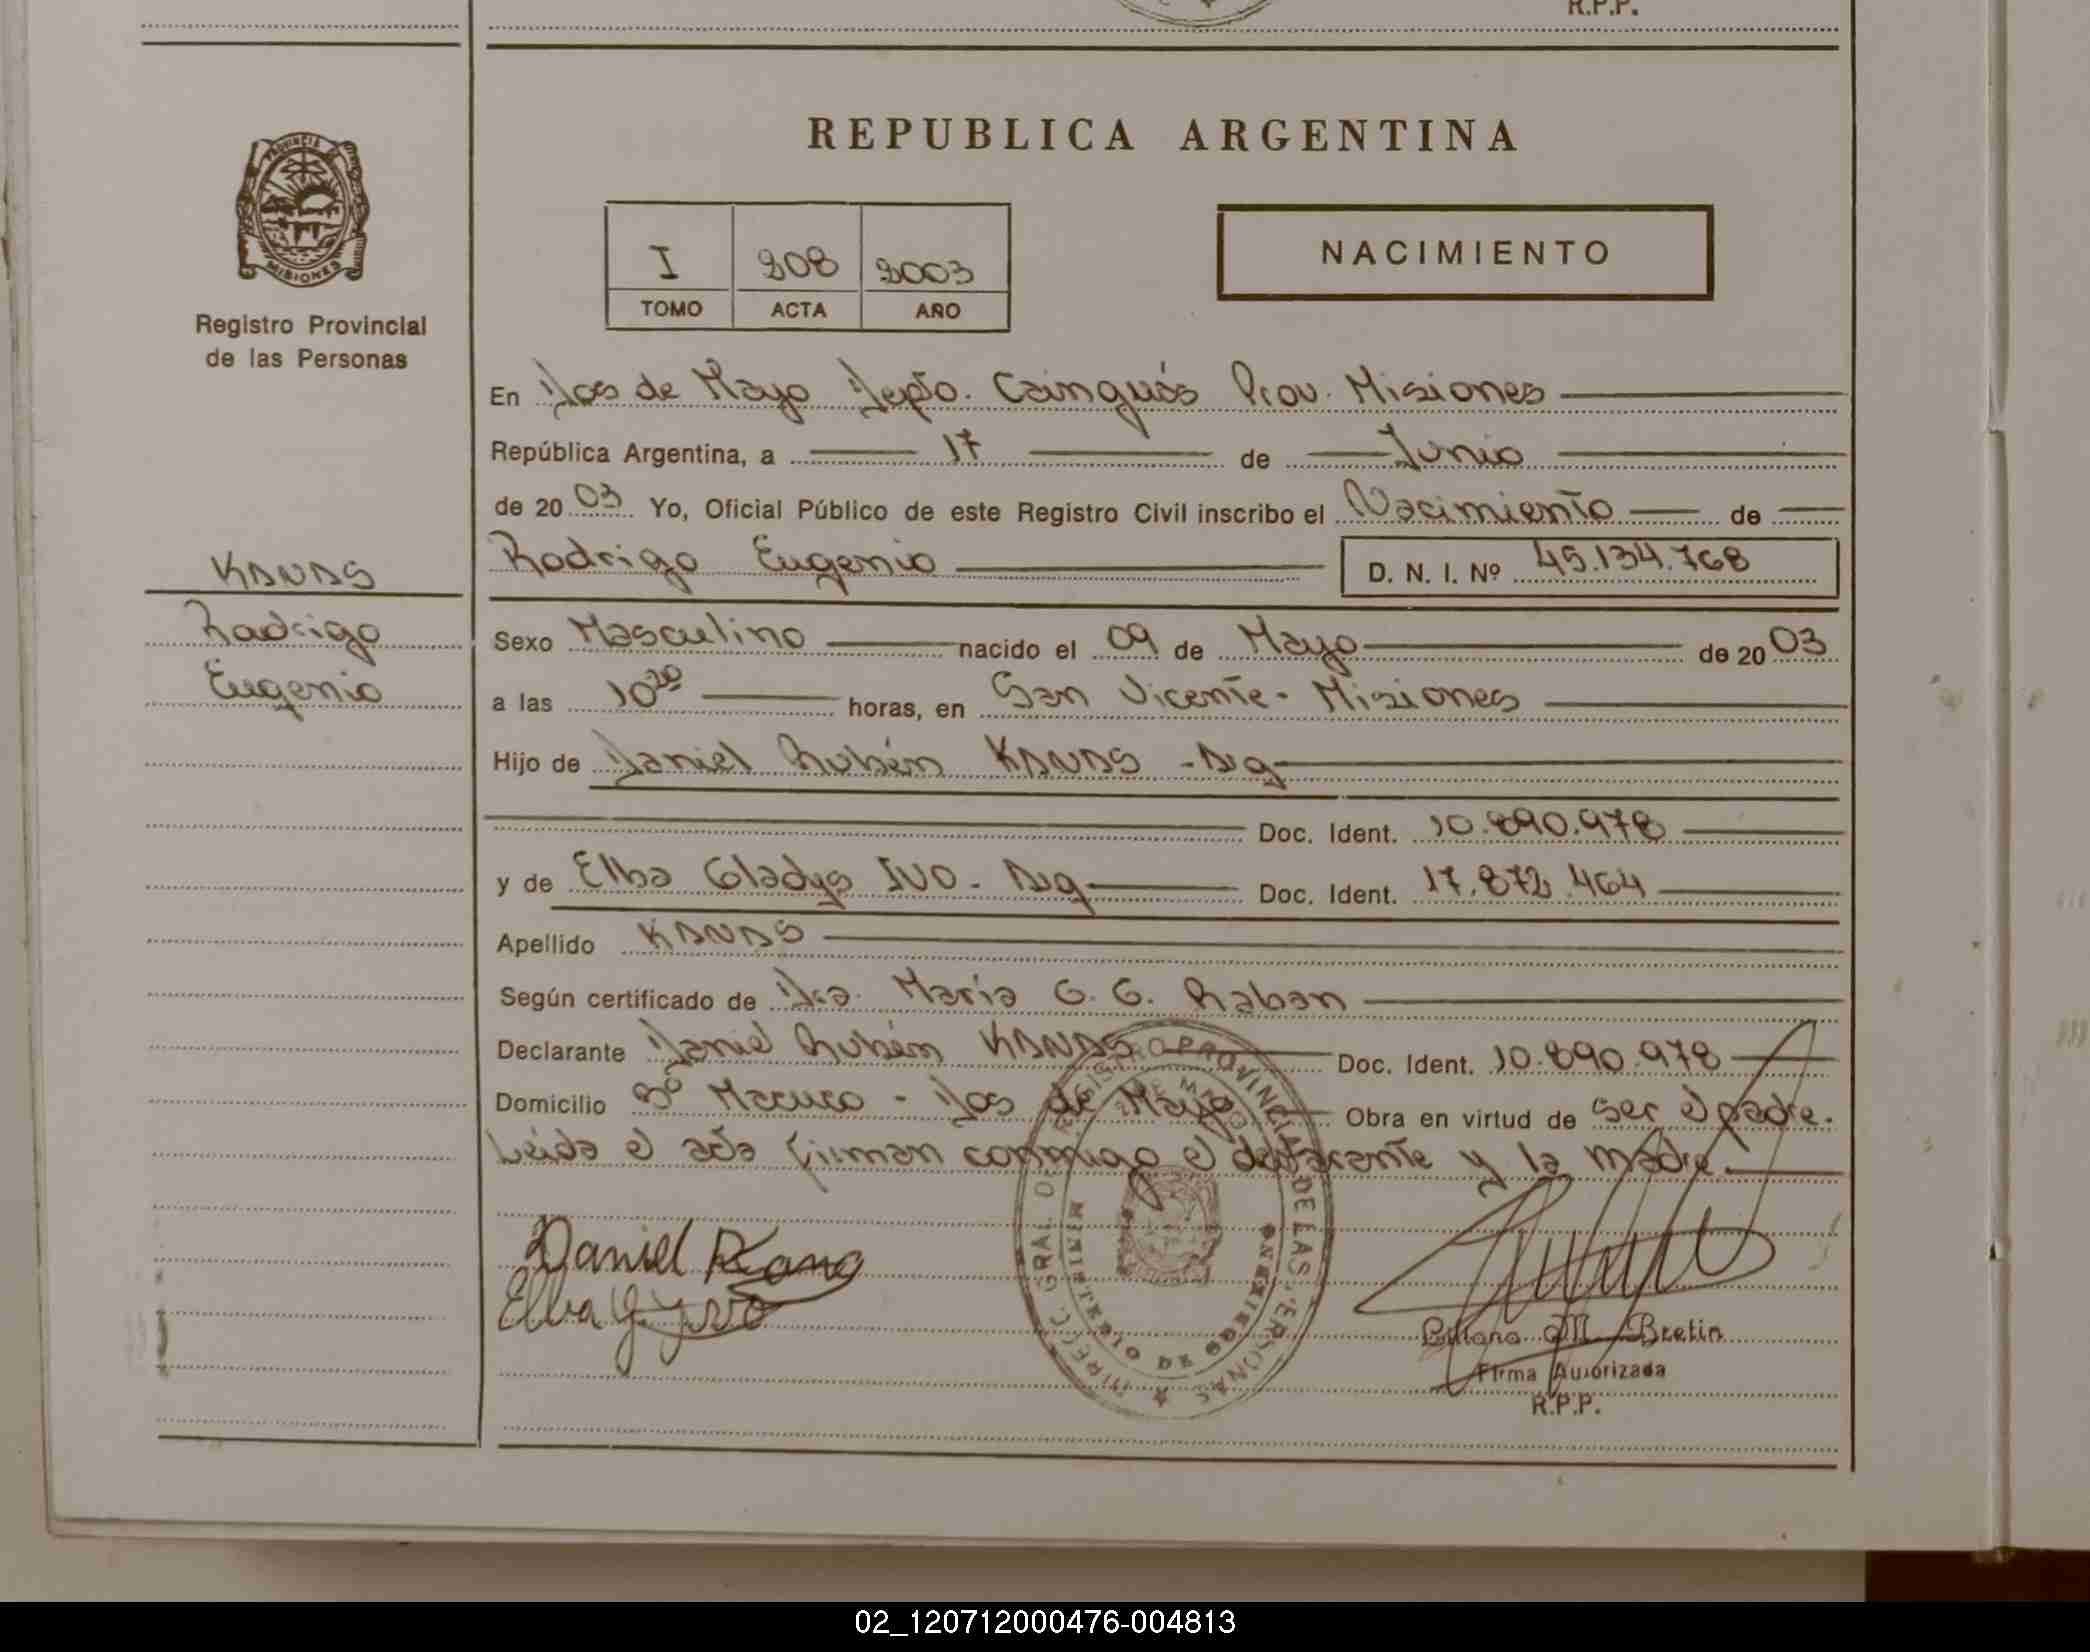 R.P.P.
REPUBLICA ARGENTINA
PROVINCIA DE
MISIONES
Registro Provincial
de las Personas
I 208 2003
TOMO ACTA AÑO
NACIMIENTO
En Dos de Mayo Depto. Cainguás Prov. Misiones
República Argentina, a 17 de Junio
de 2003 Yo, Oficial Público de este Registro Civil inscribo el Nacimiento de
Rodrigo Eugenio D. N. I. Nº 45.134.768
KANAS
Rodrigo
Eugenio
Sexo Masculino nacido el 09 de Mayo de 2003
a las 10²⁰ horas, en San Vicente - Misiones
Hijo de Daniel Rubén KANAS - Arg
Doc. Ident. 10.890.978
y de Elba Gladys IVO - Arg Doc. Ident. 17.872.464
Apellido KANAS
Según certificado de Dra. María G. G. Raban
Declarante Daniel Rubén KANAS Doc. Ident. 10.890.978
Domicilio Bº Macuco - Dos de Mayo Obra en virtud de ser el padre.
Leida el acta firman conmigo el declarante y la madre.
Daniel R Kanas
Elba G. Yvo
DIRECC. GRAL. DEL REGISTRO PROVINCIAL DE LAS PERSONAS
MINISTERIO DE GOBIERNO
2 DE MAYO
M. Bretin
Firma Autorizada
R.P.P.
02_120712000476-004813